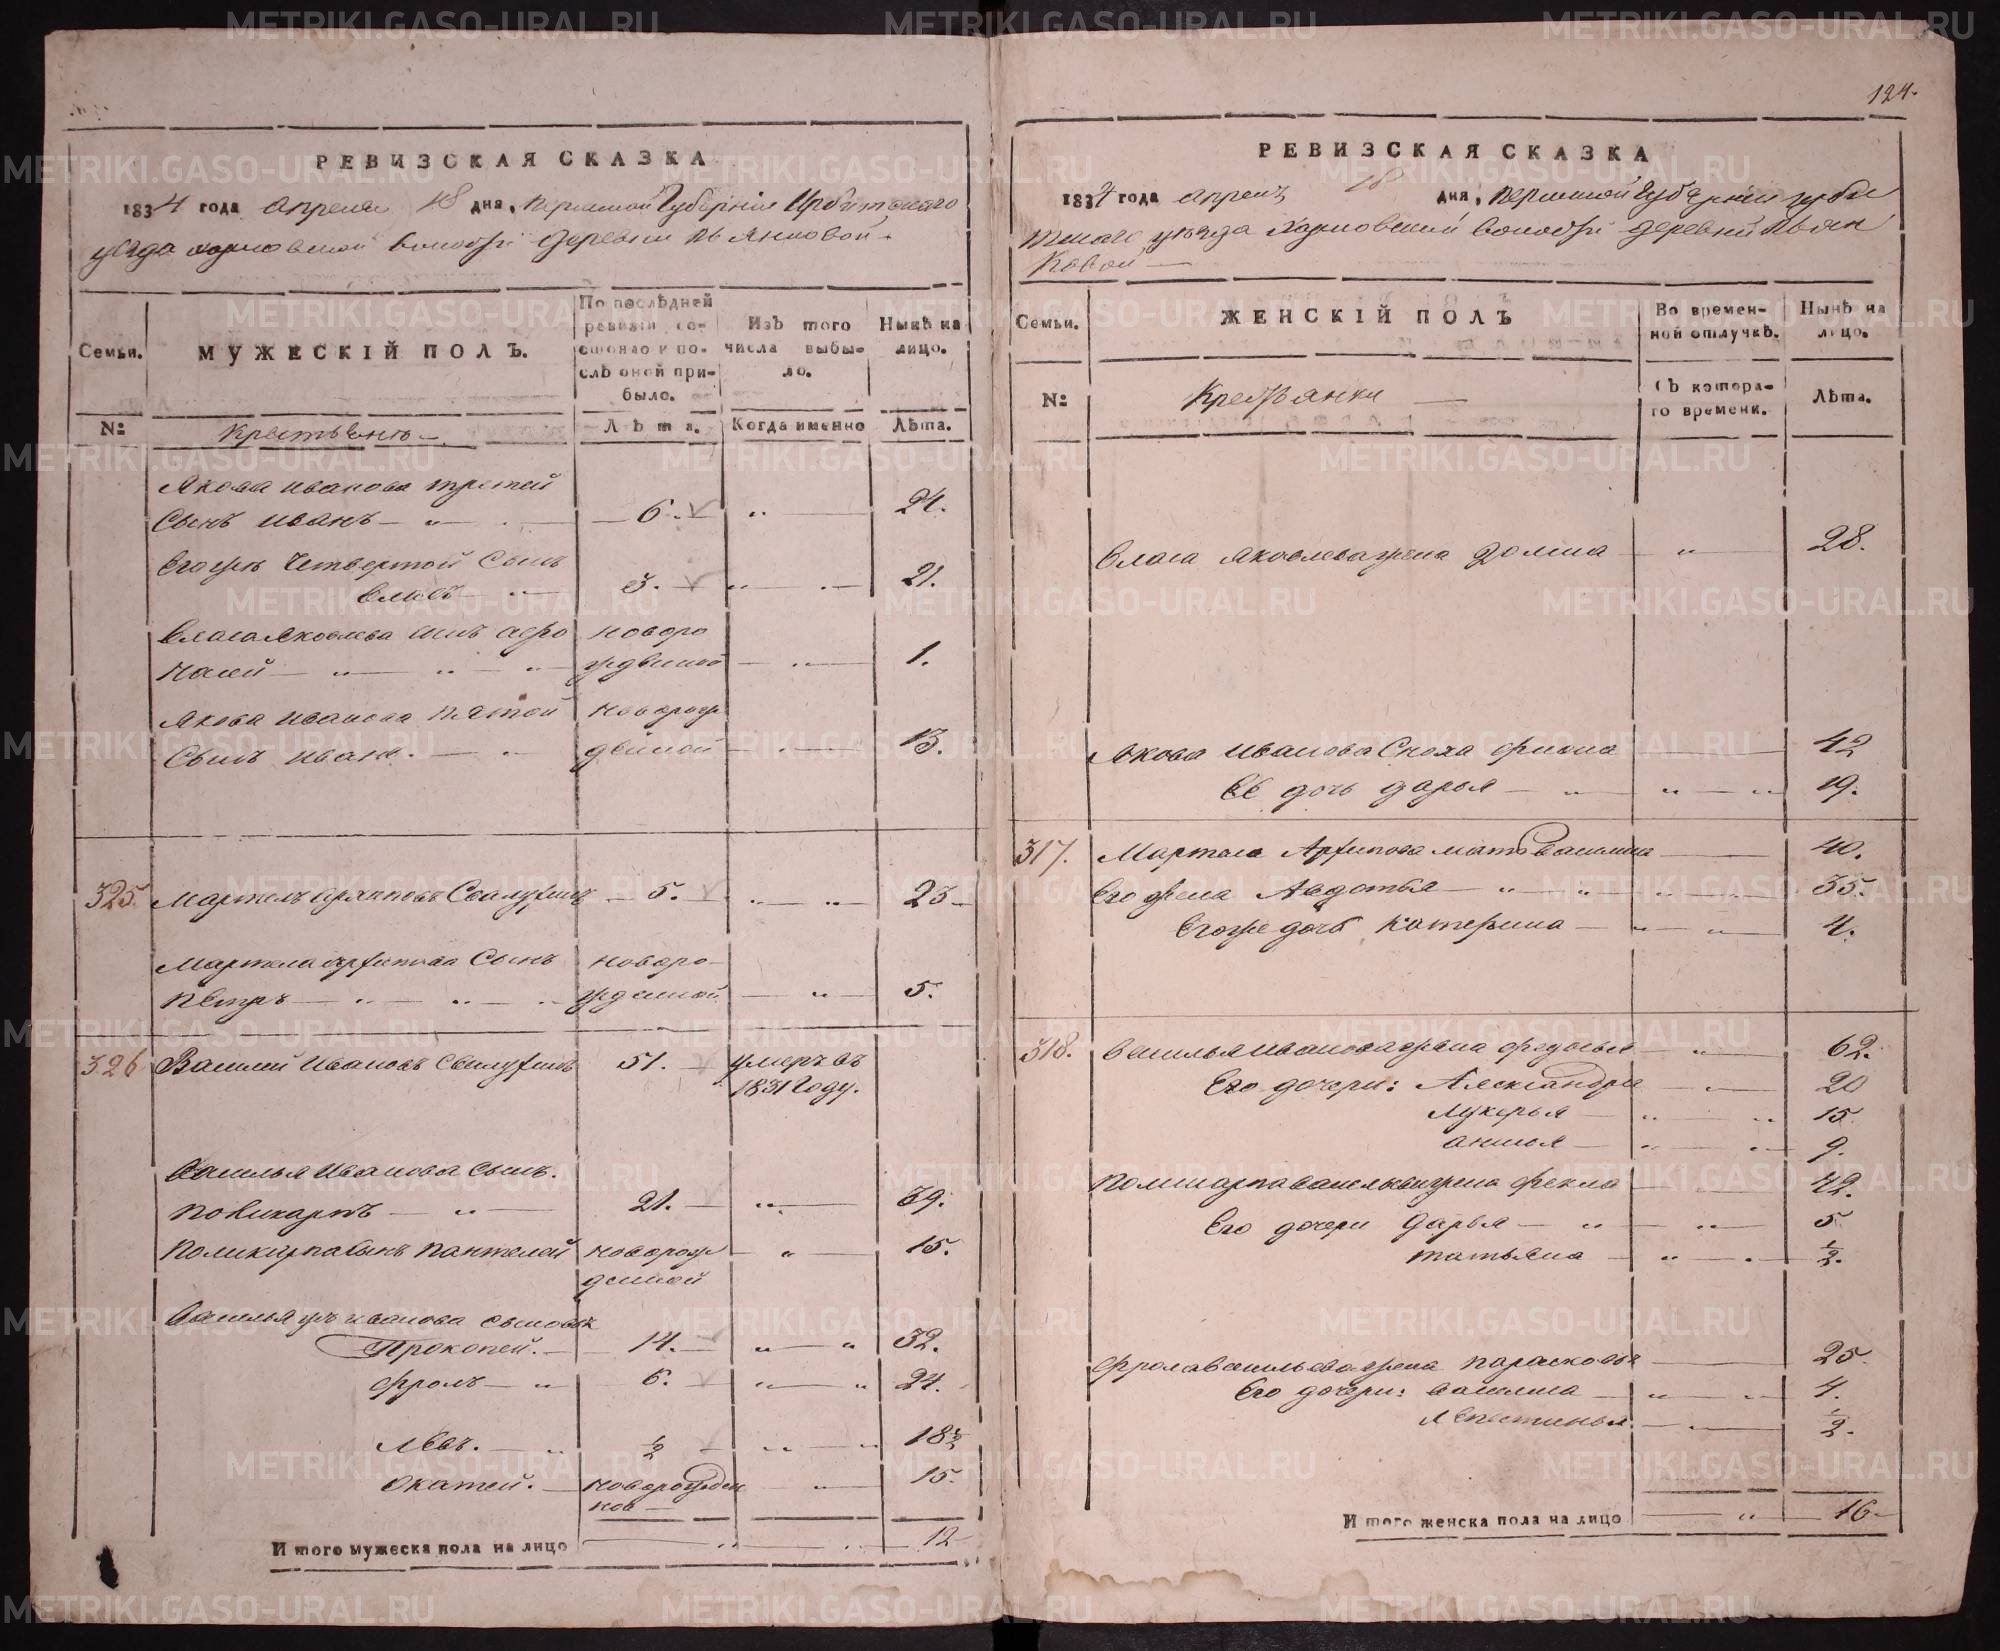 РЕВИЗСКАЯ СКАЗКА
1834 года апреля 18 дня, Пермской Губернии Ирбитскаго
уезда волости деревни
Семьи.
МУЖЕСКІЙ ПОЛЪ.
По послѣдней ревизіи состояло и послѣ оной прибыло.
Изъ того числа выбыло.
Нынѣ на лицо.
№
Крестьянъ
Лѣта.
Когда именно
Лѣта.
Якова Иванова третей
сынъ Иванъ 6. 24.
Егожъ четвертой сынъ
3. 21.
Власа Яковлева сынъ новоро
жденной 1.
Якова Иванова пятой новорож
сынъ Иванъ. денной 13.
325. 5. 23
сынъ новоро
Петръ жденной 5.
326 Василей Ивановъ 51. умеръ въ
1831 году.
Василья Иванова сынъ.
Поликарпъ 21. 39.
Поликарпа сынъ Пантелей новорож 15.
денной
Василья Иванова сыновья
Прокопей. 14. 32.
Фролъ 6. 24.
Левъ. ½ 18½
15.
И того мужеска пола на лицо 12
124.
РЕВИЗСКАЯ СКАЗКА
1834 года апреля 18 дня, Пермской Губернии Ирби
уезда волости деревни
ковой
Семьи.
ЖЕНСКІЙ ПОЛЪ
Во временной отлучкѣ.
Нынѣ на лицо.
№
Крестьянки
Съ котораго времени.
Лѣта.
Власа Яковлева жена 28.
Якова Иванова сноха 42
Ее дочь Дарья 19.
317. Архипова мать Василиса 40.
Его жена Авдотья 35.
Егоже дочь Катерина 4.
318. Василья Иванова жена Федосья 62.
Его дочери: Александра 20
Лукерья 15
Анисья 9.
Поликарпа Васильева жена Фекла 42.
Его дочери Дарья 5
Татьяна ½.
Фрола Васильева жена Парасковья 25.
Его дочери: Василиса 4.
½.
И того женска пола на лицо 16
METRIKI.GASO-URAL.RU